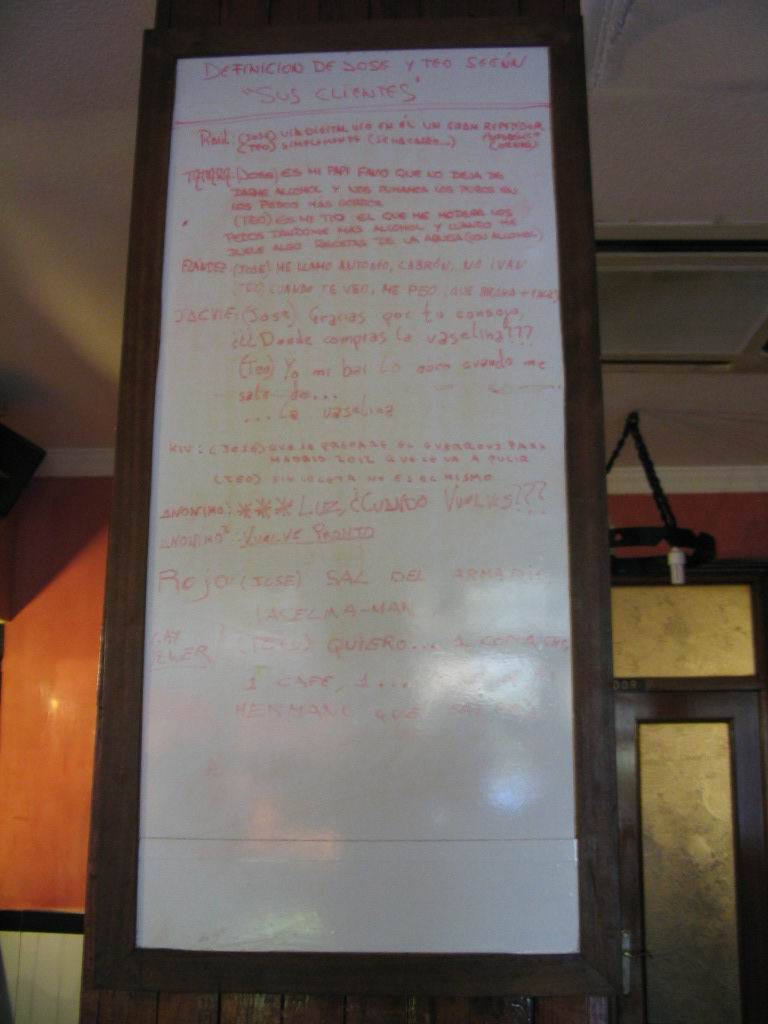 DEFINICION DE JOSE Y TEO SEGÚN
"SUS CLIENTES"
Raúl: (JOSE) VIA DIGITAL VIO EN ÉL UN GRAN REPETIDOR
(TEO) SIMPLEMENTE (SE HA CAGADO...)
(JOSE) ES MI PAPI FAVO QUE NO DEJA DE
DARME ALCOHOL Y NOS FUMAMOS LOS PUROS EN
LOS PEDOS MAS GORDOS
(TEO) ES MI TIO EL QUE ME MODERA LOS
PEDOS DANDOME MAS ALCOHOL Y CUANDO ME
DUELE ALGO RECETAS DE LA ABUELA (CON ALCOHOL)
(JOSE) ME LLAMO ANTONIO, CABRÓN, NO IVAN
(TEO) CUANDO TE VEO, ME PEO
JACKIE: (Jose) Gracias por tu consejo,
¿¿¿Donde compras la vaselina???
(Teo) Yo mi bar lo abro cuando me
sale de...
...la vaselina
KIV: (JOSE) QUE SE PREPARE EL PARA
MADRID 2012 QUE SE VA A PULIR
(TEO) SIN LOLETA NO ES EL MISMO
ANONIMO: *** LUZ, ¿CUANDO VUELVES???
ANONIMO²: VUELVE PRONTO
Rojo: (JOSE) SAL DEL ARMARIO
VASELINA-MAN
(TEO) QUIERO... 1
1 CAFE, 1...
HERMANO QUE